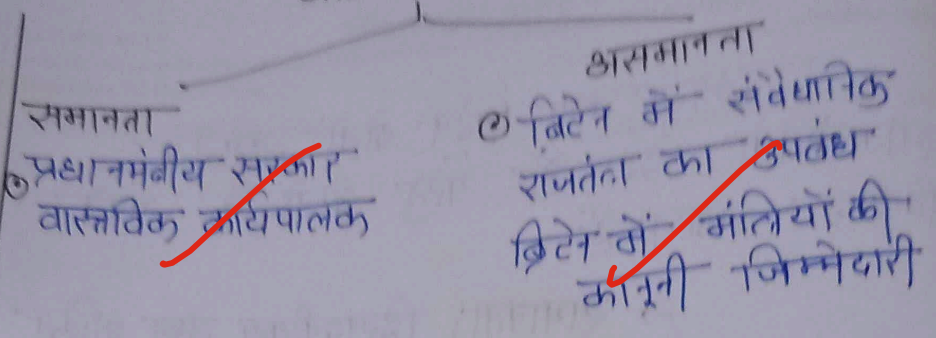 समानता
प्रधानमंत्रीय सरकार
वास्तविक कार्यपालक
असमानता
ब्रिटेन में संवैधानिक
राजतंत्र का उपबंध
ब्रिटेन में मंत्रियों की
कानूनी जिम्मेदारी